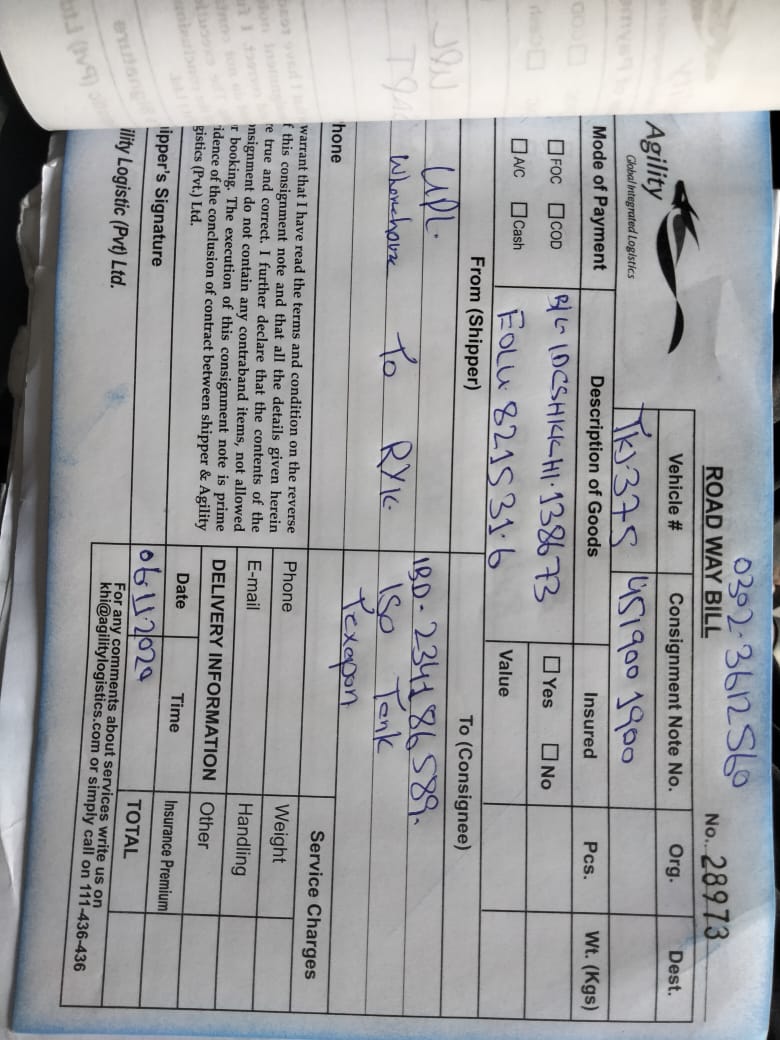 0302-3612560
ROAD WAY BILL
No. 28973
Agility
Global Integrated Logistics
Vehicle # Consignment Note No. Org. Dest.
TKJ-375 451900 1900
Mode of Payment Description of Goods Insured Pcs. Wt. (Kgs)
FOC COD B/L IDCSHKKHI-138673 Yes No
A/C Cash EOLU 821531-6 Value
From (Shipper) To (Consignee)
UPL. IBD-234186589.
To RYK. ISO Tank
Texapon
hone Service Charges
warrant that I have read the terms and condition on the reverse
f this consignment note and that all the details given herein
re true and correct. I further declare that the contents of the
nsignment do not contain any contraband items, not allowed
r booking. The execution of this consignment note is prime
idence of the conclusion of contract between shipper & Agility
gistics (Pvt.) Ltd.
Phone Weight
E-mail Handling
DELIVERY INFORMATION Other
Date Time Insurance Premium
ipper's Signature
06.11.2020 TOTAL
ility Logistic (Pvt) Ltd.
For any comments about services write us on
khi@agilitylogistics.com or simply call on 111-436-436